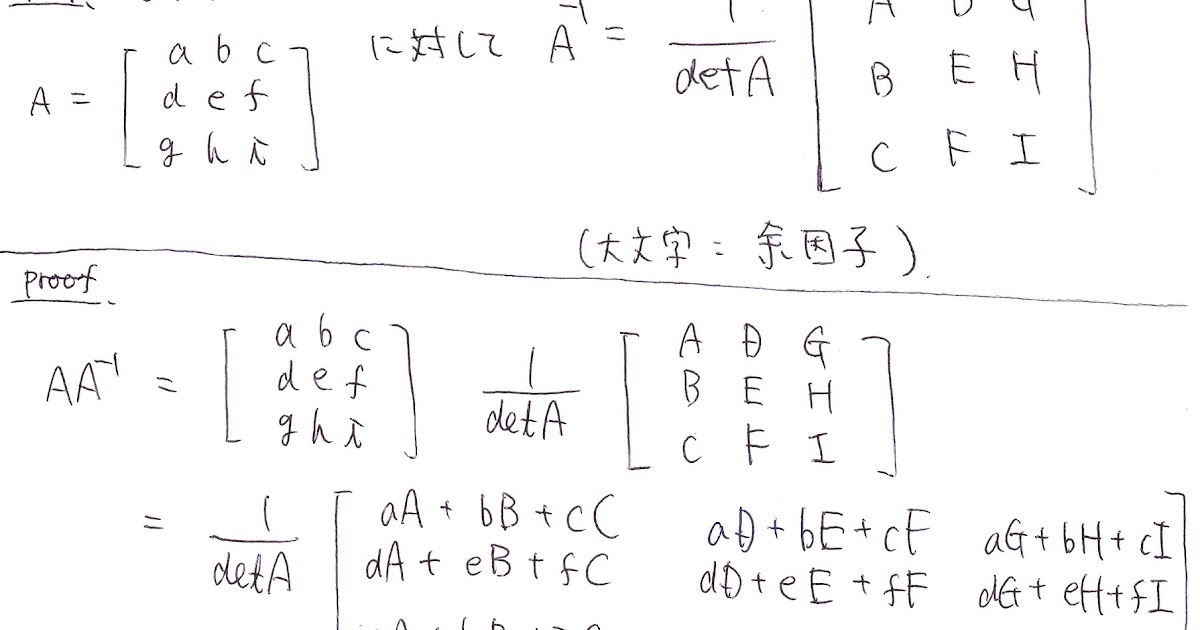 A = [ a b c
d e f
g h i ] に対して A⁻¹ = 1/detA [ A D G
B E H
C F I ]
(大文字 = 余因子).
proof.
AA⁻¹ = [ a b c
d e f
g h i ] 1/detA [ A D G
B E H
C F I ]
= 1/detA [ aA + bB + cC aD + bE + cF aG + bH + cI
dA + eB + fC dD + eE + fF dG + eH + fI ]